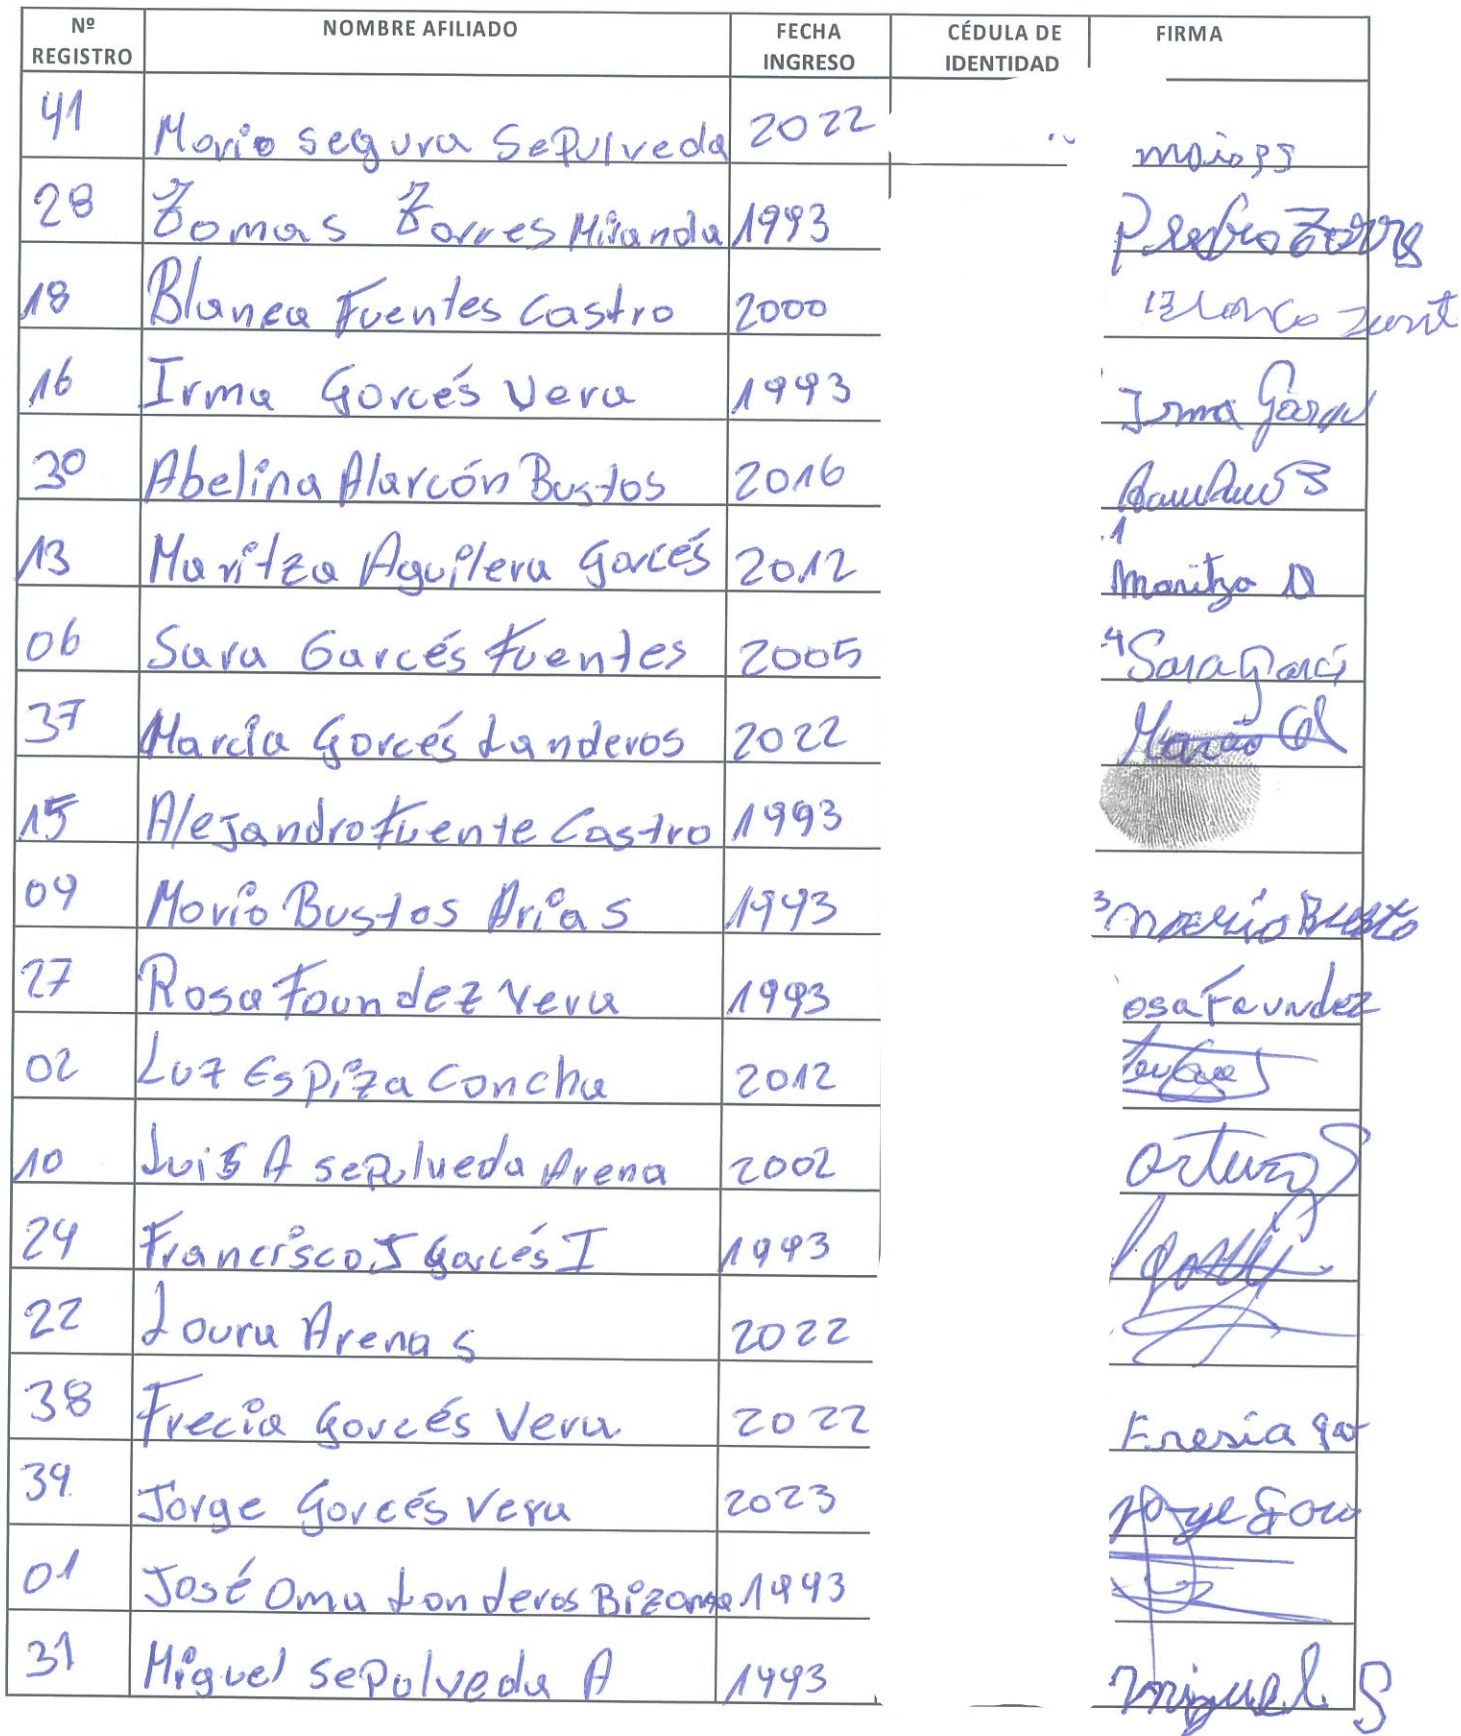 Nº REGISTRO NOMBRE AFILIADO FECHA INGRESO CÉDULA DE IDENTIDAD FIRMA
41 Mario segura SePulveda 2022
28 Tomas Torres Miranda 1993 Pedro Torres
18 Blanca Fuentes Castro 2000 Blanca
16 Irma Garcés Vera 1993 Irma
30 Abelina Alarcón Bustos 2016
13 Maritza Aguilera Garcés 2012 Maritza
06 Sara Garcés Fuentes 2005 Sara Garcé
37 Marcia Garcés Landeros 2022
15 Alejandro Fuente Castro 1993
09 Mario Bustos Arias 1993 Mario Busto
27 Rosa Faundez Vera 1993 osa Faundez
02 Luz Espiza Concha 2012
10 Luis A sepulveda Arena 2002 arturo S
24 Francisco J Garcés I 1993
22 Laura Arenas 2022
38 Frecia Garcés Vera 2022 Fresia gar
39 Jorge Garcés Vera 2023 Jorge
01 José Oma Landeros Bizama 1993
31 Miguel sePulveda A 1993 miguel S